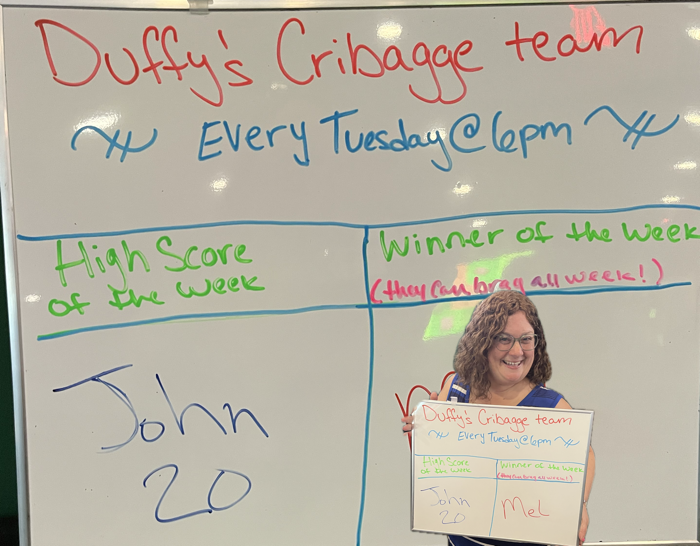 Duffy's Cribagge team
Every Tuesday @ 6pm
High Score
of the week
Winner of the Week
(they can brag all week!)
John
20
Duffy's Cribagge team
Every Tuesday @ 6pm
High Score
of the week
Winner of the Week
(they can brag all week!)
John
20
Mel